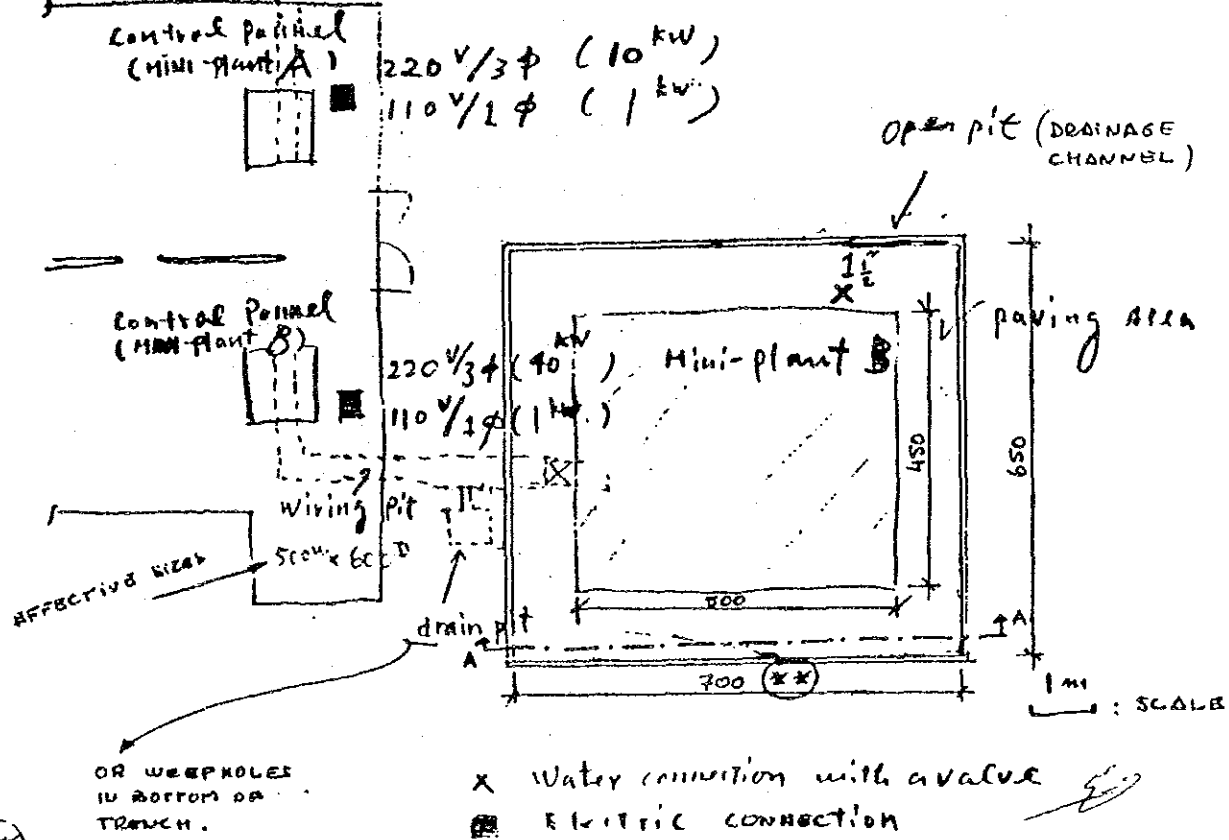 Control Pannel
(MINI-plant A)
220 V/3 φ (10 kW)
110 V/1 φ (1 kW)
Open pit (DRAINAGE
CHANNEL)
1 1/2"
X
Control Pannel
(MINI-plant B)
220 V/3 φ (40 kW)
110 V/1 φ (1 kW)
Mini-plant B
paving Area
450
650
Wiring pit
EFFECTIVE SIZES
drain pit
A
A
700
(**)
1 m
: SCALE
OR WEEPHOLES
IN BOTTOM OF
TRENCH.
X Water connection with a valve
Electric connection